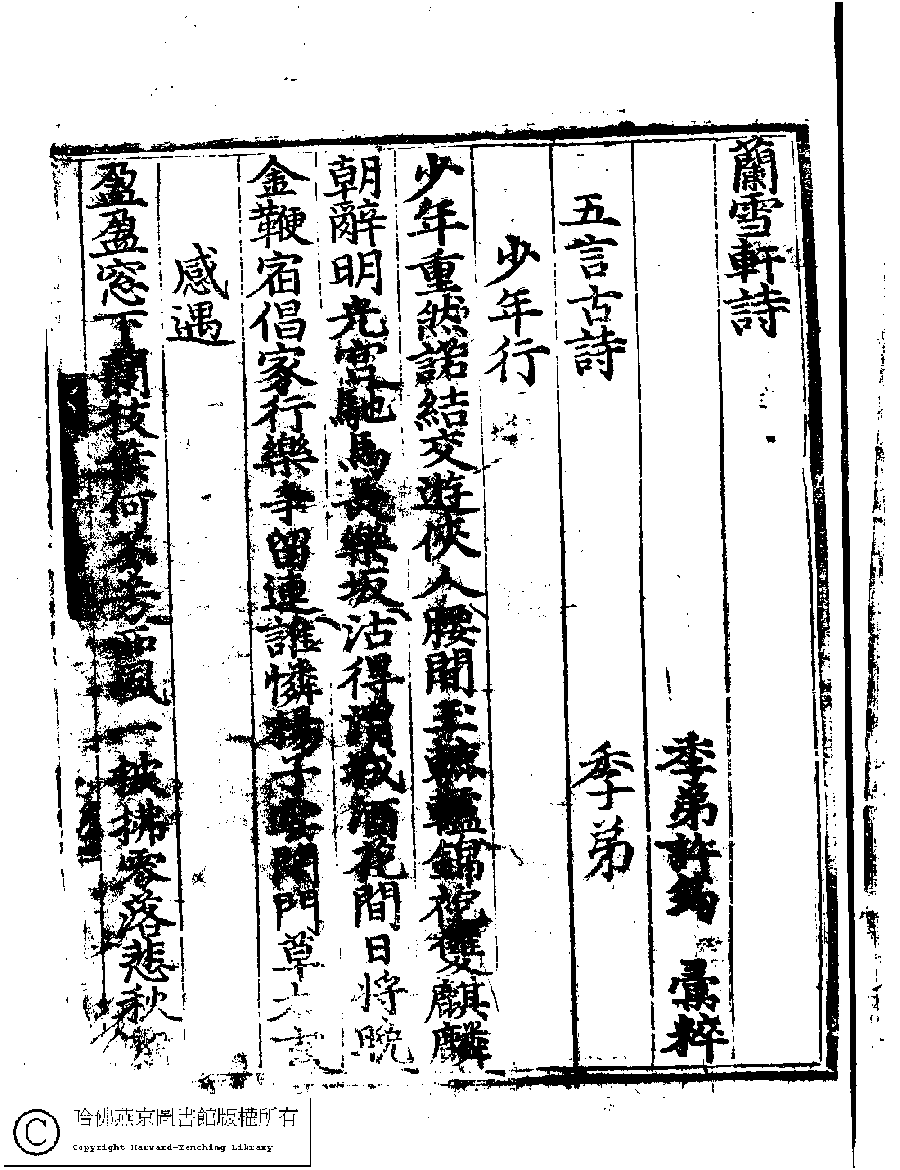 蘭雪軒詩
季弟許筠 彙粹
五言古詩 季弟
少年行
少年重然諾結交遊俠人腰間玉轆轤錦袍雙麒麟
朝辭明光宮馳馬長樂坂沽得渭城酒花間日將晩
金鞭宿倡家行樂爭留連誰憐楊子雲閉門草太玄
感遇
盈盈窓下蘭枝葉何芬芳西風一披拂零落悲秋
哈佛燕京圖書館版權所有
Copyright Harvard-Yenching Library